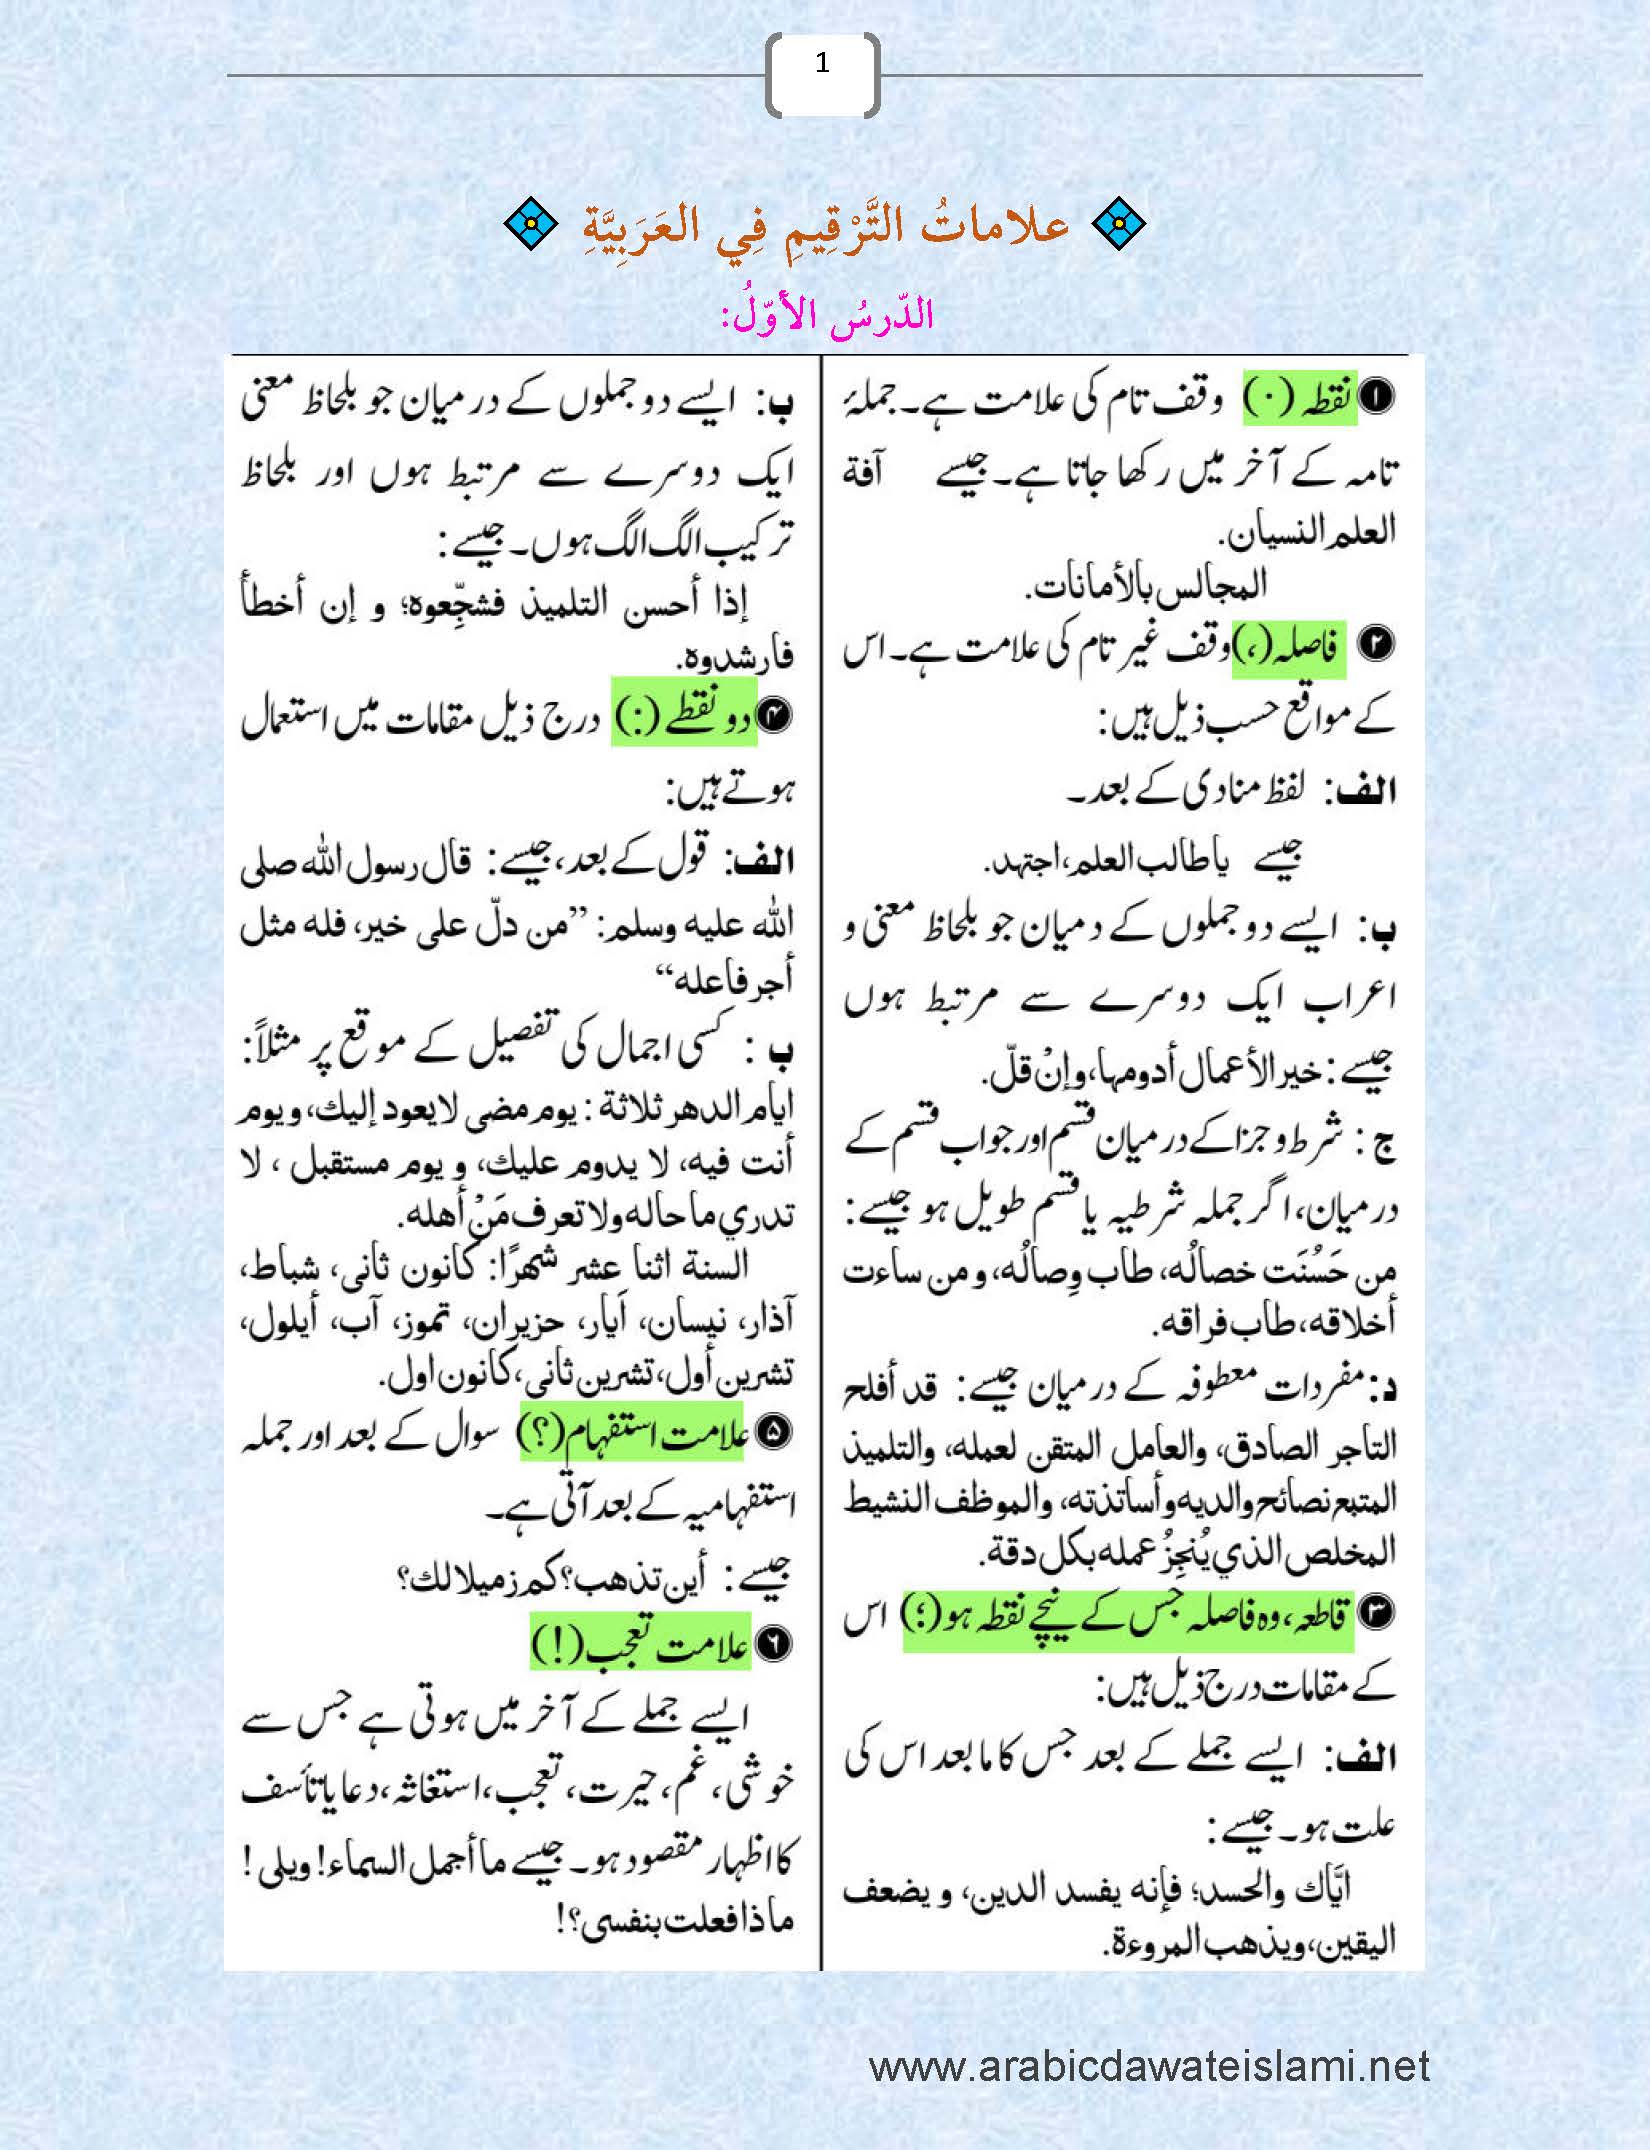 1
علاماتُ التَّرْقِيمِ فِي العَرَبِيَّةِ
الدّرسُ الأوّلُ:
❶ نقطہ (.) وقف تام کی علامت ہے۔ جملۂ
تامہ کے آخر میں رکھا جاتا ہے۔ جیسے آفة
العلم النسيان.
المجالس بالأمانات.
❷ فاصلہ (،) وقف غیر تام کی علامت ہے۔ اس
کے مواقع حسب ذیل ہیں:
الف: لفظ منادی کے بعد۔
جیسے يا طالب العلم، اجتهد.
ب: ایسے دو جملوں کے دمیان جو بلحاظ معنی و
اعراب ایک دوسرے سے مرتبط ہوں
جیسے: خير الأعمال أدومها، وإنْ قلّ.
ج: شرط و جزا کے درمیان قسم اور جواب قسم کے
درمیان، اگر جملہ شرطیہ یا قسم طویل ہو جیسے:
من حَسُنَت خصالُه، طاب وِصالُه، و من ساءت
أخلاقه، طاب فراقه.
د: مفردات معطوفہ کے درمیان جیسے: قد أفلح
التاجر الصادق، والعامل المتقن لعمله، والتلميذ
المتبع نصائح والديه وأساتذته، والموظف النشيط
المخلص الذي يُنجِزُ عمله بكل دقة.
❸ قاطعہ، وہ فاصلہ جس کے نیچے نقطہ ہو (؛) اس
کے مقامات درج ذیل ہیں:
الف: ایسے جملے کے بعد جس کا ما بعد اس کی
علت ہو۔ جیسے:
ايَّاك والحسد؛ فإنه يفسد الدين، و يضعف
اليقين، ويذهب المروءة.
ب: ایسے دو جملوں کے درمیان جو بلحاظ معنی
ایک دوسرے سے مرتبط ہوں اور بلحاظ
ترکیب الگ الگ ہوں۔ جیسے:
إذا أحسن التلميذ فشجِّعوه؛ و إن أخطأ
فارشدوه.
❹ دو نقطے (:) درج ذیل مقامات میں استعمال
ہوتے ہیں:
الف: قول کے بعد، جیسے: قال رسول الله صلى
الله عليه وسلم: ”من دلّ على خير، فله مثل
أجر فاعله“
ب: کسی اجمال کی تفصیل کے موقع پر مثلاً:
ايام الدهر ثلاثة: يوم مضى لا يعود إليك، و يوم
أنت فيه، لا يدوم عليك، و يوم مستقبل، لا
تدري ما حاله ولا تعرف مَنْ أهله.
السنة اثنا عشر شهرًا: كانون ثانى، شباط،
آذار، نيسان، اَيار، حزيران، تموز، آب، أيلول،
تشرين أول، تشرين ثانى، كانون اول.
❺ علامت استفہام (؟) سوال کے بعد اور جملہ
استفہامیہ کے بعد آتی ہے۔
جیسے: أين تذهب؟ كم زميلا لك؟
❻ علامت تعجب (!)
ایسے جملے کے آخر میں ہوتی ہے جس سے
خوشی، غم، حیرت، تعجب، استغاثہ، دعا یا تأسف
کا اظہار مقصود ہو۔ جیسے ما أجمل السماء! ويلى!
ماذا فعلت بنفسى؟!
www.arabicdawateislami.net